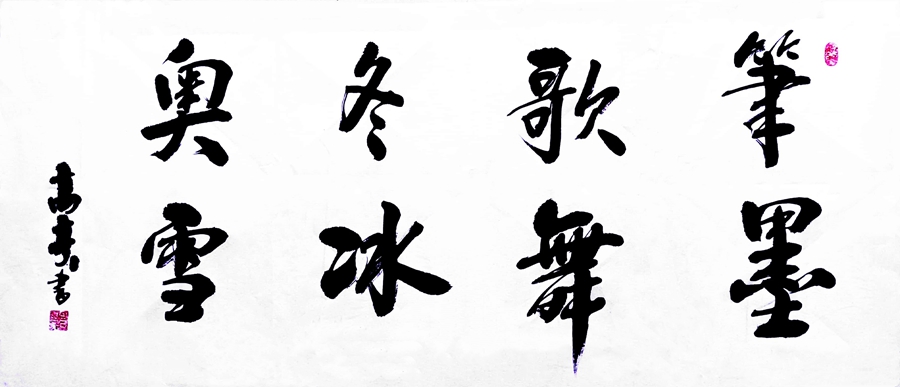 筆墨
歌舞
冬冰
奥雪
高亭书